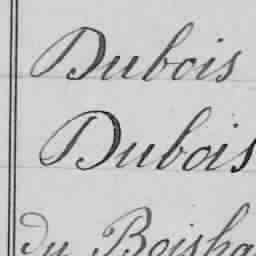 Dubois
Dubois
du Boisha